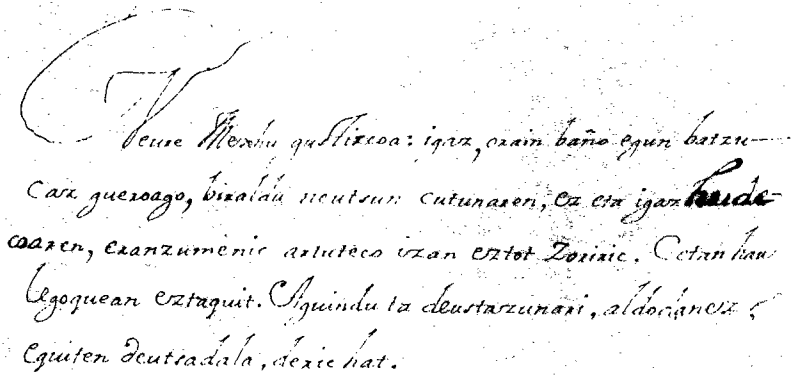 Neure Mexhu guztizcoa: igaz, orain baño egun batzu-
caz gueroago, biraldu neutsun cutunaren, ez eta igaz huide-
coaren, eranzumenic artuteco izan eztot Zoriric. Cetan hau
legoquean eztaquit. Aguindu ta deustazunari, aldodanez
eguiten deutsadala, deric hat.